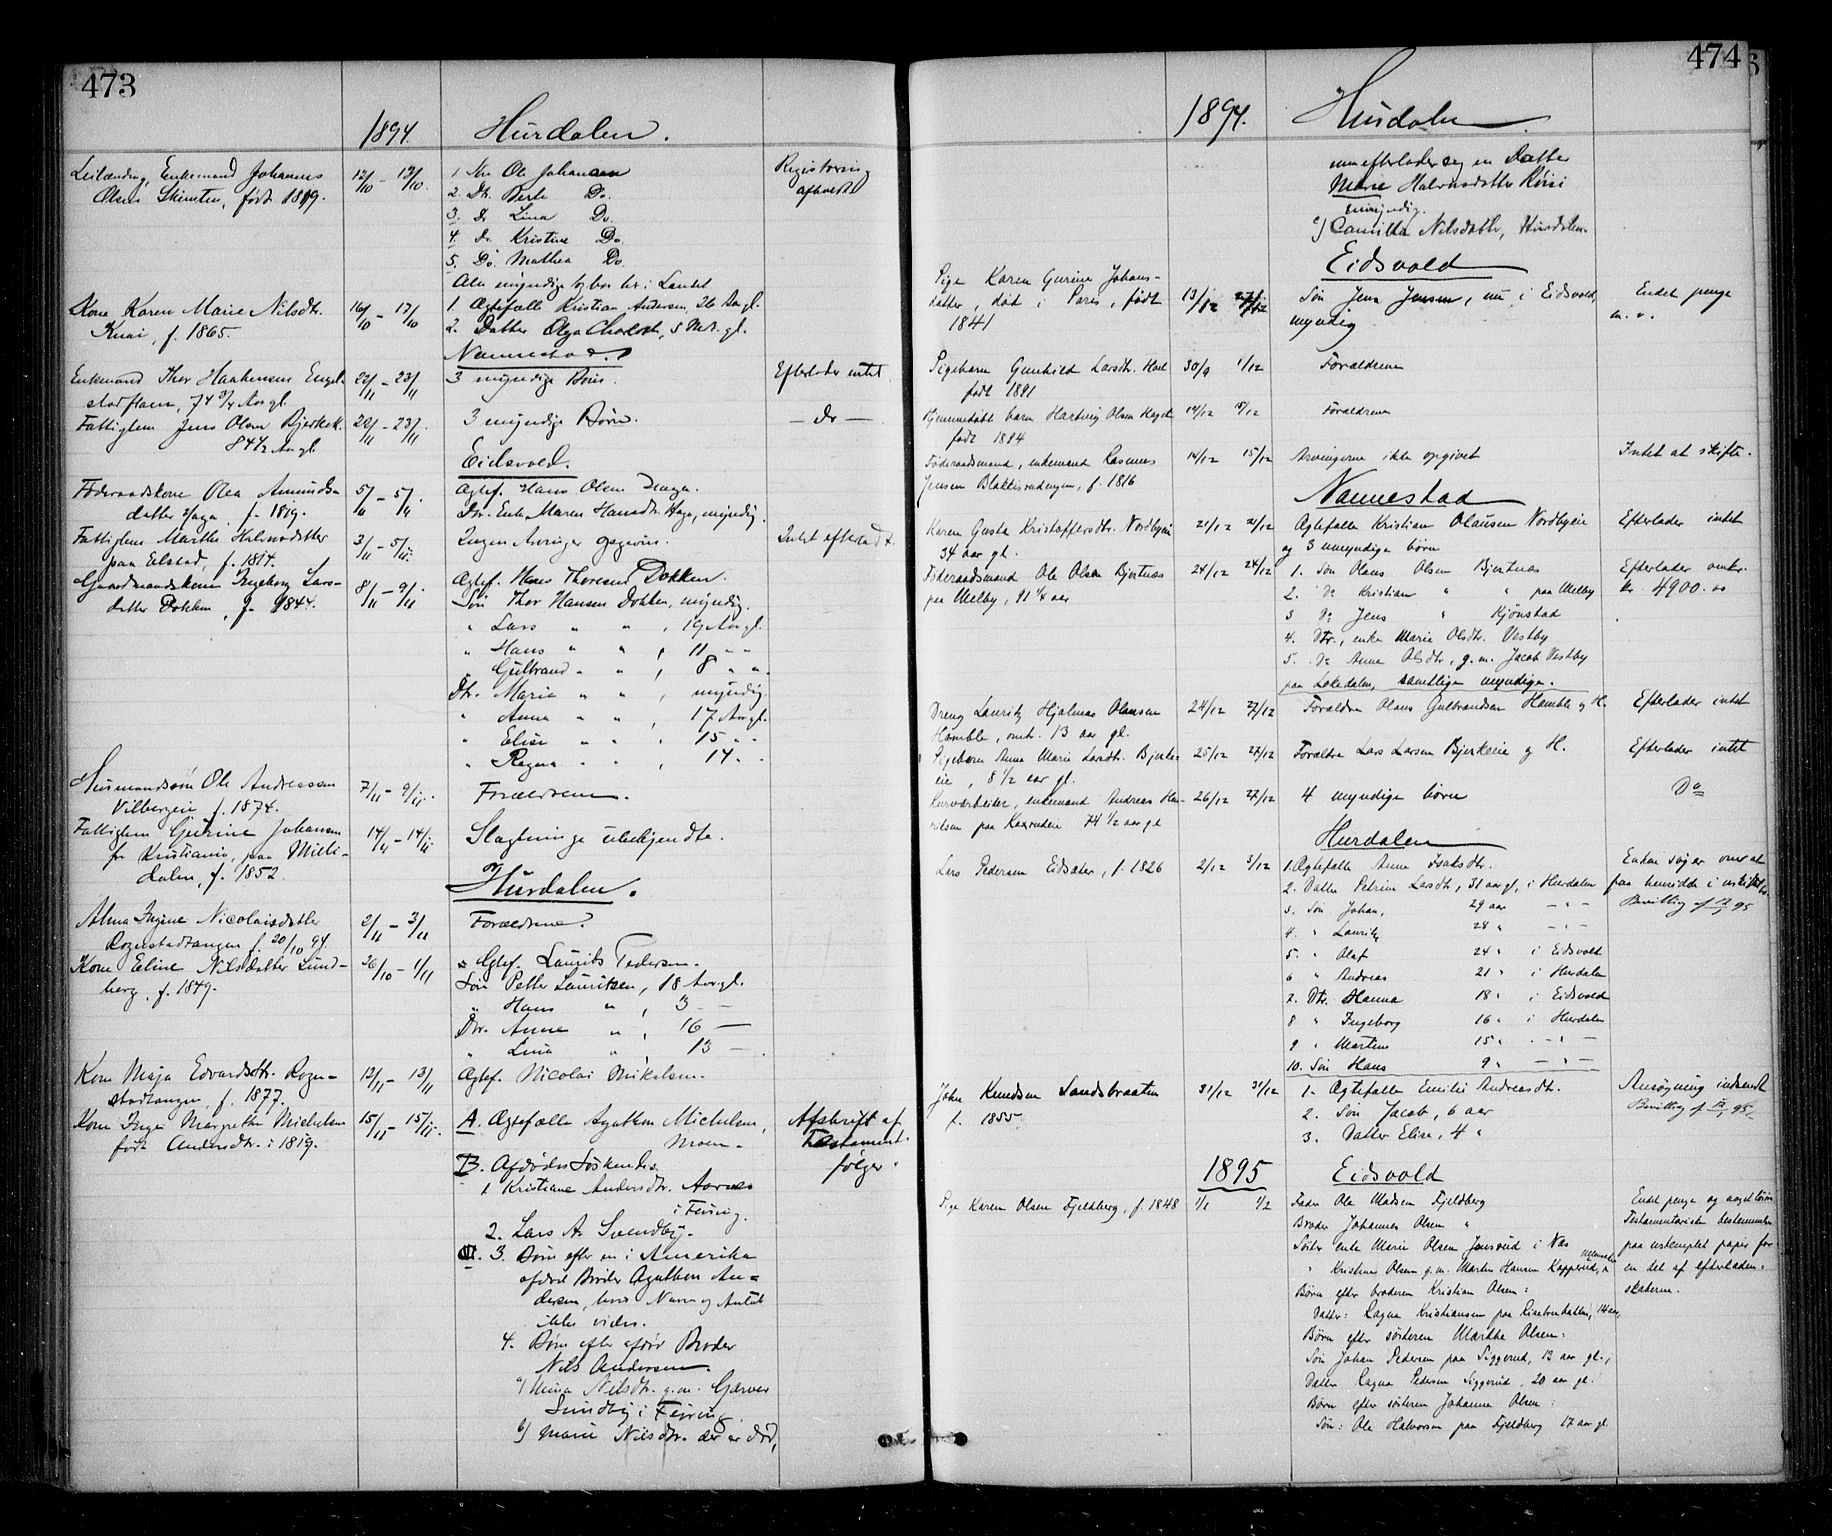 473
1894. Hurdalen.
Leilænding, Enkemand Johannes 12/10 – 12/10. 1 Søn Ole Johansen Registrering
Olsen Skinsten, født 1819. 2. Dtr. Berte Do. afholdt
3. Do Lina Do.
4. Do Kristine Do.
5. Do. Mathea Do.
Alle myndige og bor her i Landet
Kone Karen Marie Nilsdtr. 16/10 – 17/10 1. Ægtefælle Kristian Andersen, 26 Aar gl.
Knai, f. 1865. 2. Datter Olga Charlotte, 5 Mdr. gl.
Nannestad.
Enkemand Thor Haakensen Engel- 22/11 – 23/11 3 myndige Børn. Efterlader intet.
stadflaen, 74 3/4 Aar gl.
Fattiglem Jens Olsen Bjerkek. 22/11 – 23/11. 3 myndige Børn. — do —
84 1/2 Aar gl.
Eidsvold.
Føderaadskone Olea Amunds- 5/11 – 5/11. Ægtef. Hans Olsen Haga.
datter Haga, f. 1819. Dtr. Enke Maren Hansdtr. Haga, myndig.
Fattiglem Marthe Halvorsdatter 3/11 – 5/11. Ingen Arvinger opgivne. Intet efterladt.
paa Elstad, f. 1814.
Gaardmandskone Ingeborg Lars- 8/11 – 9/11 Ægtef. Hans Thoresen Dokken.
datter Dokken, f. 1844. Søn Thor Hansen Dokken, myndig.
" Lars " " , 19 Aar gl.
" Hans " " , 11 " "
" Gulbrand " " , 8 " "
Dtr. Maria " " , myndig
" Anna " " , 17 Aar gl.
" Elise " " , 15 " "
" Ragna " " , 14 " "
Husmandssøn Ole Andreassen 7/11 – 9/11. Forældrene.
Vilbergeie f. 1874.
Fattiglem Gurine Johansen 14/11 – 14/11 Slægtninge ubekjendte.
fr Kristiania, paa Milli-
dalen, f. 1852.
Hurdalen.
Alma Ingine Nicolaisdatter 2/11 – 3/11 Forældrene.
Rognstadtangen f. 20/10 94.
Kone Eline Nilsdatter Lund- 26/10 – 1/11 Ægtef. Laurits Pedersen.
berg, f. 1849. Søn Petter Lauritsen, 18 Aar gl.
" Hans " , 3 —
Dtr. Anne " , 16 —
" Lina " , 13 —
Kone Maja Edvardsdtr. Rogn- 12/11 – 13/11 Ægtef. Nicolai Mikelsen.
stadtangen, f. 1877.
Kone Inga Margrethe Michelsen 15/11 – 15/11. A. Ægtefælle Agathon Michelsen, Afskrift af
født Andersdtr. i 1819. Moen. Testament
B. Afdødes Søskende. følger.
1 Kristiane Andersdtr. Aarnes
i Feiring.
2. Lars A. Svendby.
3. Børn efter en i Amerika
afdød Broder Agathon An-
dersen, hvis Navn og Antal
ikke vides.
4. Børn efter afdød Broder
Nils Andersen.
a) Mina Nilsdtr. g.m. Garver
Sundby i Feiring
b) Marie Nilsdtr. der er død,
474
1894. Hurdalen.
men efterlader sig en Datter
Marie Halvorsdatter Røise
myndig.
c) Camilla Nilsdatter, Hurdalen
Eidsvold
Pige Karen Gurine Johans- 13/12 27/12 Søn Jens Jensen, nu i Eidsvold, Endel penge
datter, død i Paris, født myndig m. v.
1841
Pigebarn Gunhild Larsdtr. Hoel 30/9 1/12 Forældrene
født 1891
Hjemmedøbt barn Hartvig Olsen Haget 14/12 15/12 Forældrene
født 1894
Føderaadsmand, enkemand Rasmus 14/12 15/12 Arvingerne ikke opgivet Intet at skifte.
Jensen Blakkisrudengen, f. 1816
Nannestad
Karen Gusta Kristoffersdtr. Nordbyeie 21/12 21/12 Ægtefælle Kristian Olausen Nordbyeie Efterlader intet
34 aar gl. og 3 umyndige børn
Føderaadsmand Ole Olsen Bjertnæs 24/12 24/12 1. Søn Olaus Olsen Bjertnæs Efterlader omkr.
paa Melby, 91 1/4 aar 2. Do Kristian " " paa Melby kr. 4900.00
3 Do Jens " Kjønstad
4. Dtr., enke Marie Olsdtr. Vestby
5. Do Anne Olsdtr, g.m. Jacob Vestby
paa Løkedalen, samtlige myndige.
Dreng Lauritz Hjalmar Olausen 24/12 27/12 Forældre Olaus Gulbrandsen Hamble og H. Efterlader intet
Hamble, omtr. 13 aar gl.
Pigebarn Anne Marie Larsdtr. Bjerke- 25/12 27/12 Forældre Lars Larsen Bjerkeeie og H. Efterlader intet
eie, 8 1/2 aar gl.
Kurvarbeider, enkemand Andreas Hen- 26/12 27/12 4 myndige børn Do
riksen paa Kaxrudeie 74 1/2 aar gl
Hurdalen
Lars Pedersen Eidsæter, f. 1826 2/12 3/12 1. Ægtefælle Anne Isaksdtr. Enken søger om at
2. Datter Petrine Larsdtr, 31 aar gl, i Hurdalen paa henridde i uskiftet bo.
3. Søn Johan, 29 aar — " — Bevilling af 12/1 95
4. " Lauritz 28 " — " —
5. " Olaf 24 " i Eidsvold
6 " Andreas 21 " i Hurdalen
7. Dtr. Hanna 18 " i Eidsvold
8 " Ingeborg 16 " i Hurdalen
9 " Martine 15 " — " —
10. Søn Hans 9 " — " —
Johan Knudsen Sandsbraaten 31/12 31/12 1. Ægtefælle Emilie Andreasdtr. Ansøgning indsendt
f. 1855. 2. Søn Jacob, 6 aar Bevilling af 12/1 95
3. Datter Elise, 4 "
1895 Eidsvold
Pige Karen Olsen Fjeldberg, f. 1848 1/1 1/2 Fader Ole Madsen Fjeldberg Endel penge og noget løsøre
Broder Johannes Olsen " Testamentarisk bestemmelse
Søster enke Marie Olsen Jønsrud i Næs paa ustemplet papir for
" Kristine Olsen g.m. Martin Hansen Kopperud, en del af efterladen-
Børn efter broderen Kristian Olsen: skaberne.
Datter: Ragna Kristiansen paa Risebrobakken, 14 aar,
Børn efter søsteren Marthe Olsen:
Søn Johan Pedersen paa Siggerud, 13 aar gl.,
Datter Ragna Pedersen Siggerud, 20 aar gl.
Børn efter søsteren Johanne Olsen:
Søn: Ole Halvorsen paa Fjeldberg 17 aar gl.